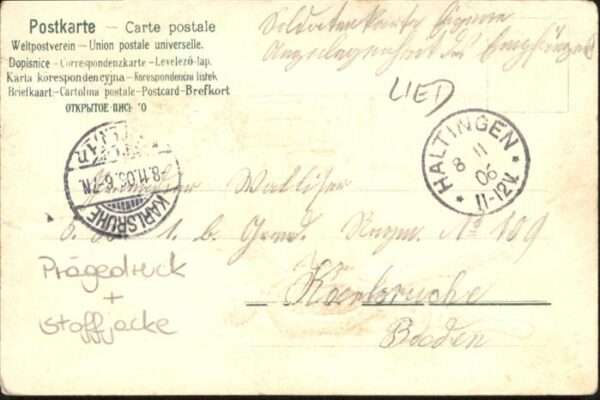 Postkarte – Carte postale
Weltpostverein – Union postale universelle.
Dopisnice – Correspondenzkarte – Levelező-lap.
Karta korespondencyjna – Korespondenční lístek
Briefkaart – Cartolina postale – Postcard – Brefkort
ОТКРЫТОЕ
Soldatenkarte Eigene
Angelegenheit des Empfängers
LIED
HALTINGEN
8 11
06
* 11-12V. *
8.11.06.6-7N.
KARLSRUHE
Walliser
1. b. Gren. Regm. No 109
Karlsruhe
Baden
Prägedruck
+
Stoffjacke